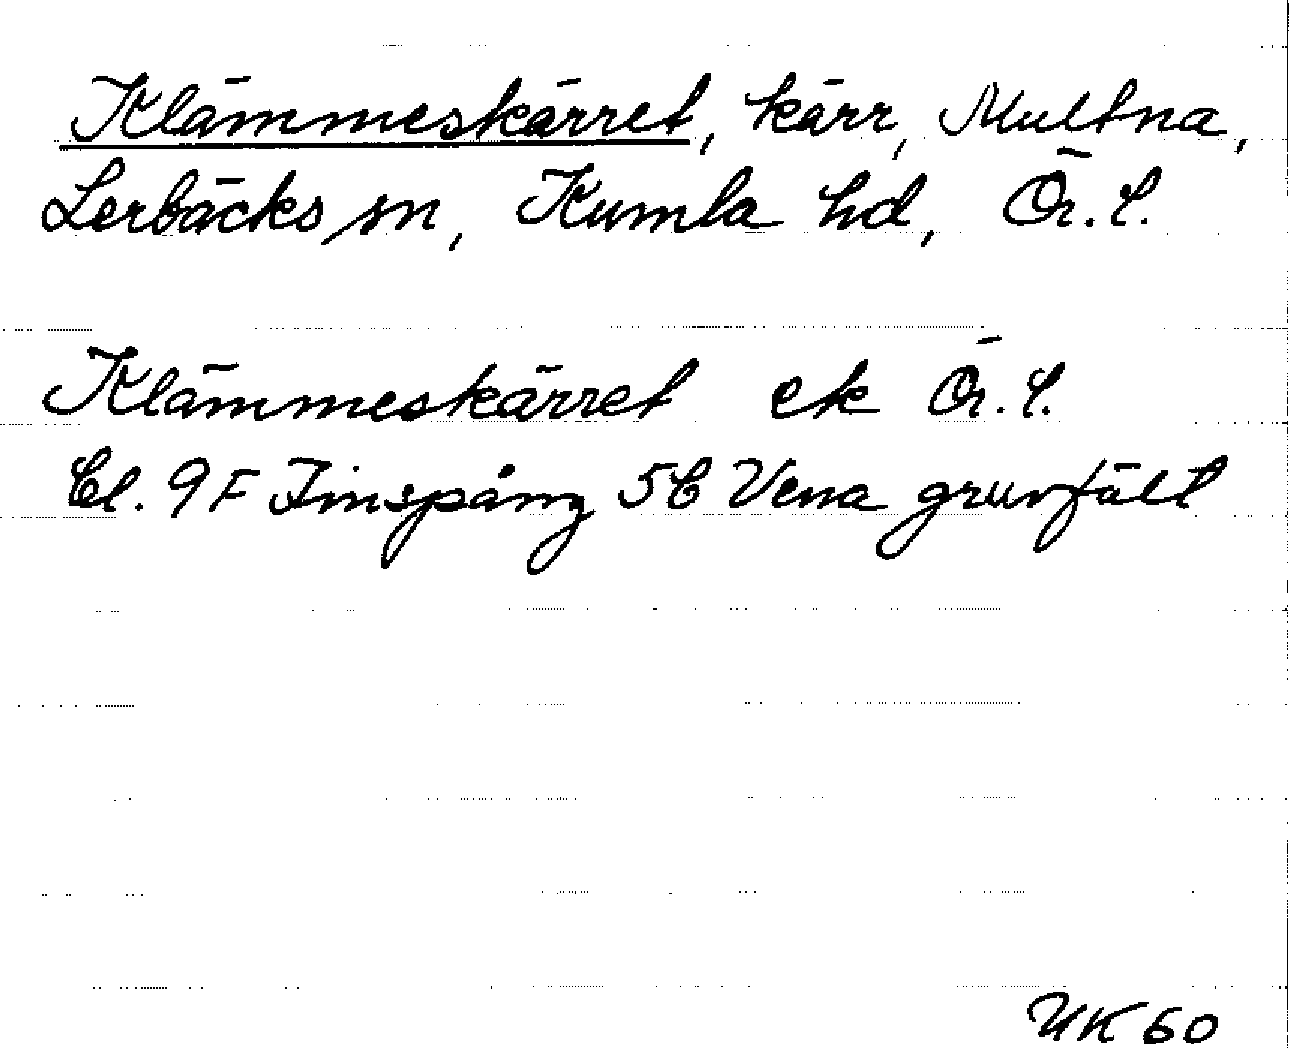 Klämmeskärret, kärr, Multna,
Lerbäcks sn, Kumla hd, Ör. l.
Klämmeskärret ek Ör. l.
El. 9F Finspång 5C Vena gruvfält
UK 60